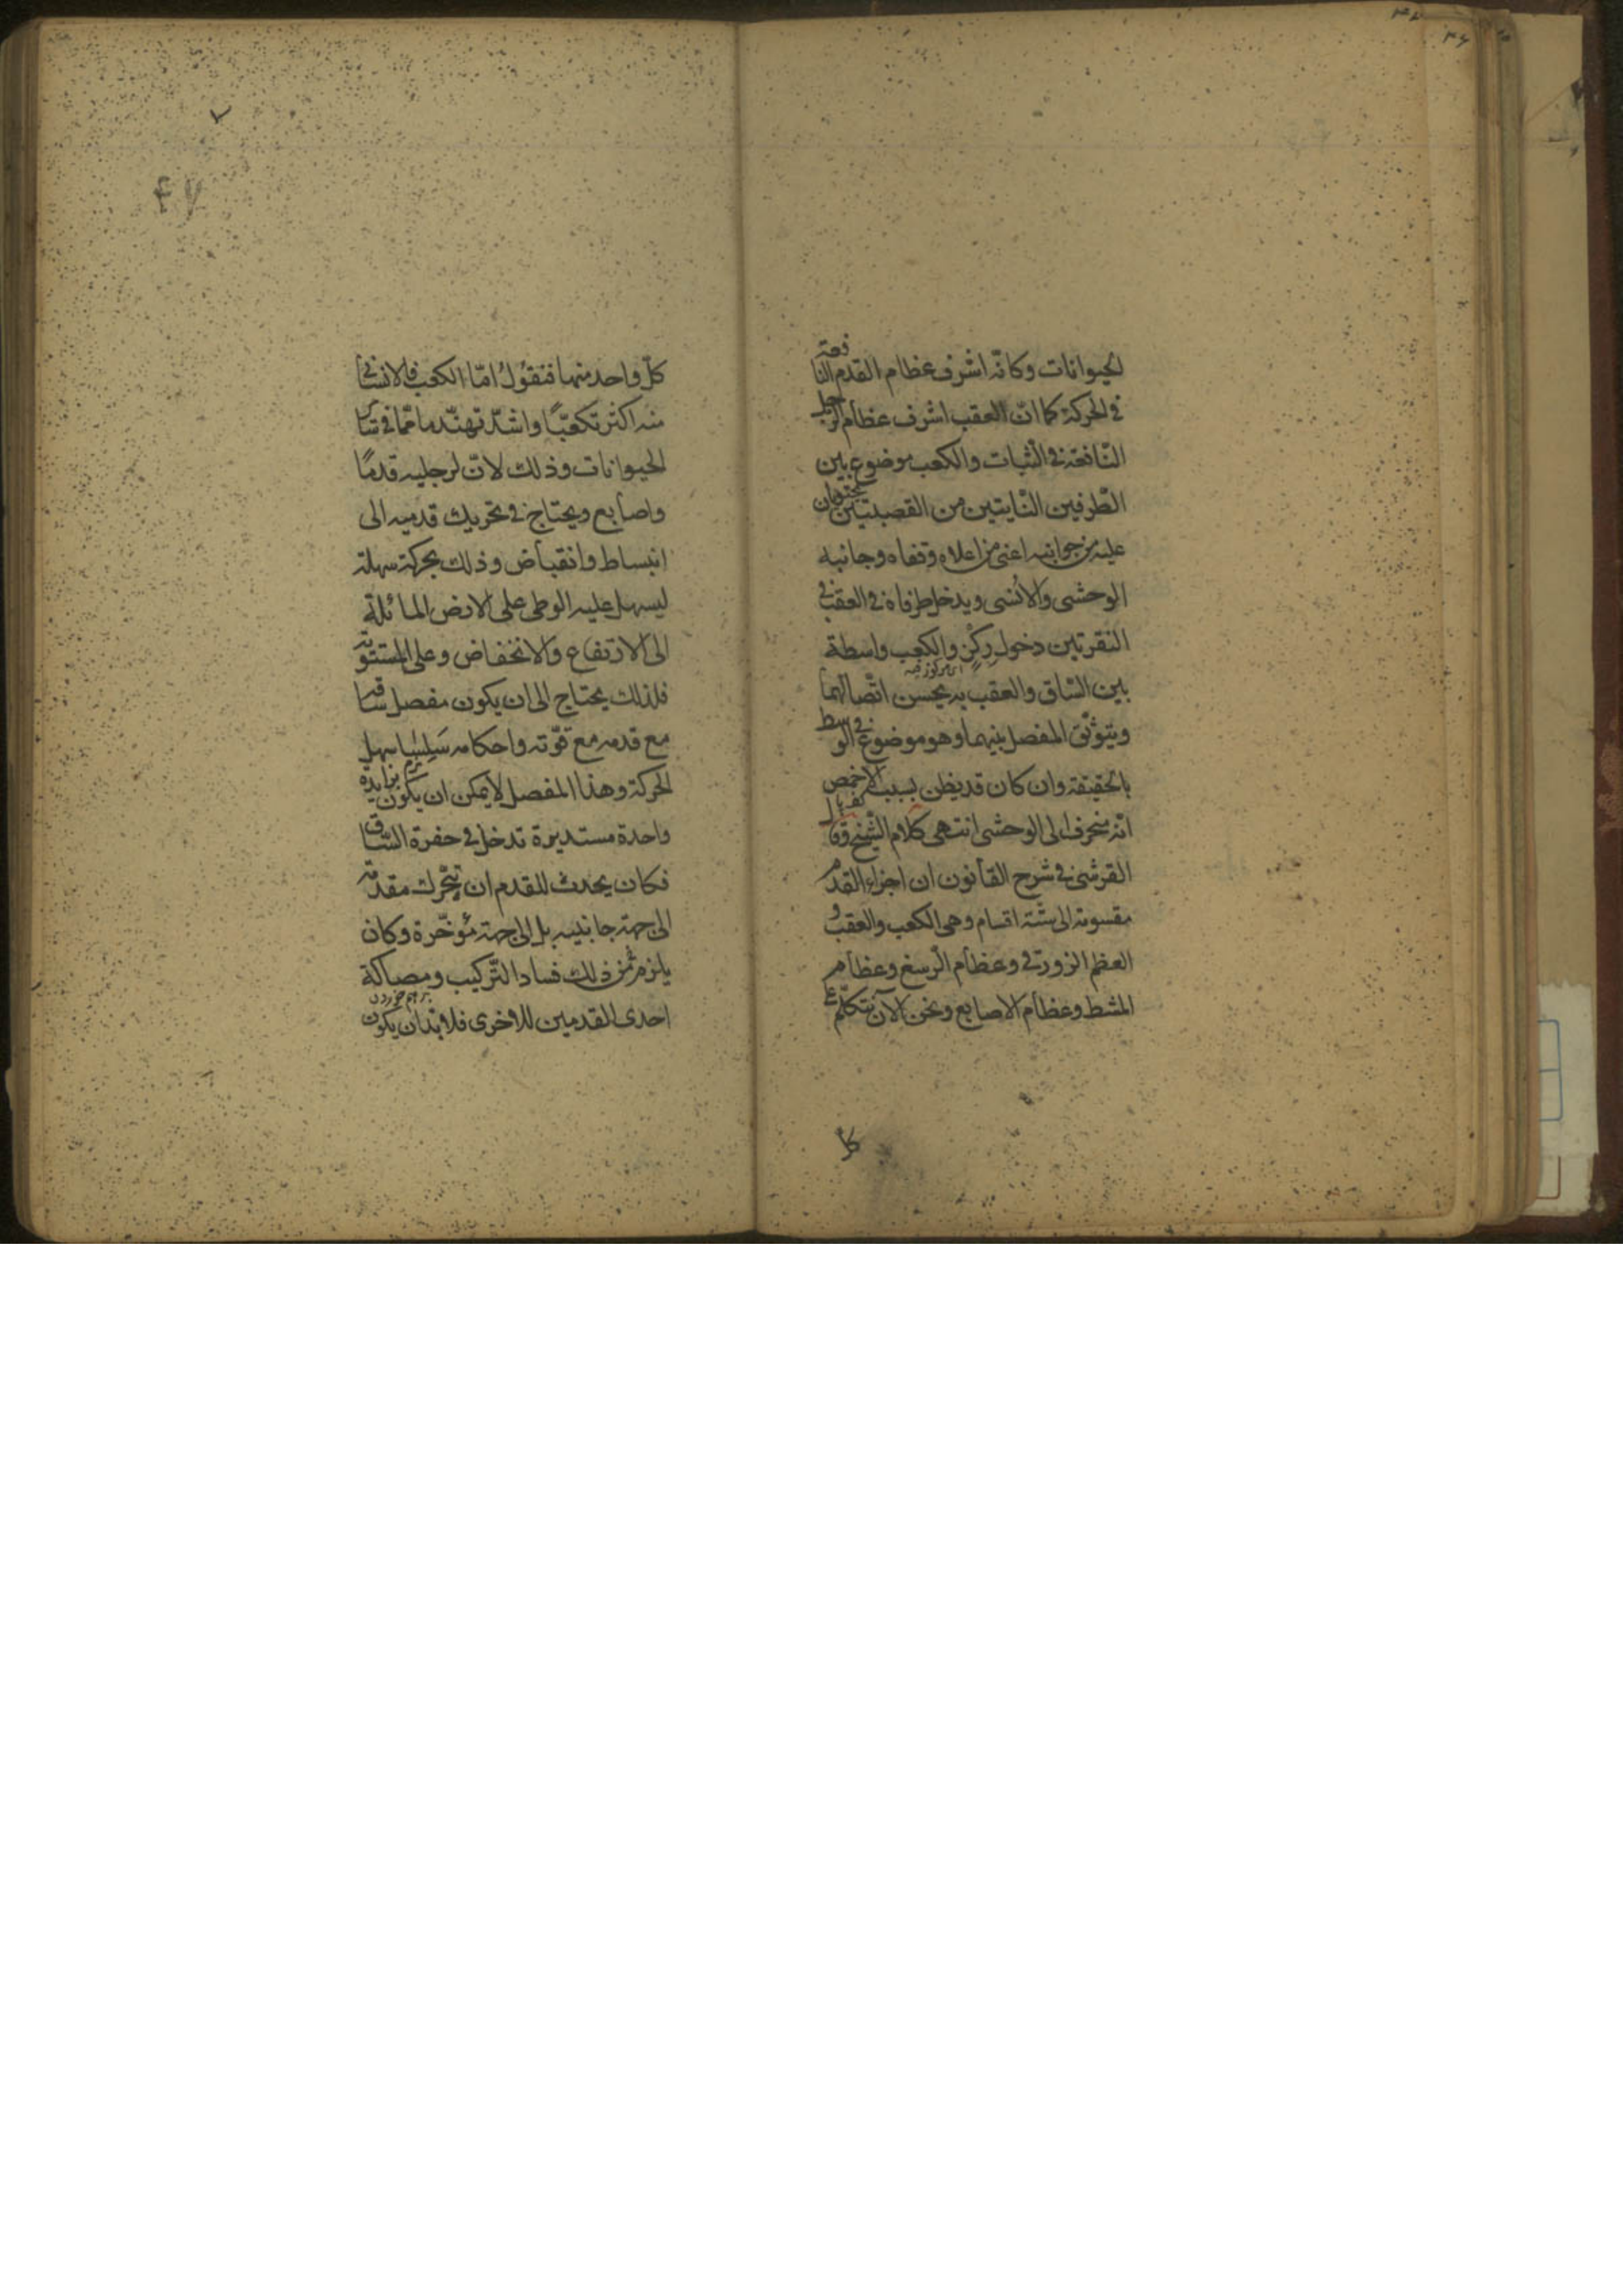 الحيوانات وكانّه اشرف عظام القدم النافعة
في الحركة كما انّ العقب اشرف عظام الرجل
النّافعة في الثبات والكعب موضوع بين
الطّرفين النّايتين من القصبتين يحتويان
عليه من جوانبه اعنى من اعلاه وقفاه وجانبيه
الوحشى والانسى ويدخل طرفاه في العقب في
النقرتين دخول ركز والكعب واسطة
اى مركوز فيه
بين السّاق والعقب به يحسن اتّصالهما
ويتوثّق المفصل بينهما وهو موضوع في الوسط
بالحقيقة وان كان قد يظن بسبب الاخمص
انّه منحرف الى الوحشى انتهى كلام الشّيخ وقال
القرشى في شرح القانون ان اجزاء القدم
مقسومة الى ستّة اقسام وهى الكعب والعقب و
العظم الزورقى وعظام الرسغ وعظام
المشط وعظام الاصابع ونحن الآن نتكلّم على
كل
٤٧
كلّ واحد منها فنقول امّا الكعب فالانسانى
منه اكثر تكعّبًا واشدّ تهندما ممّا في سائر
الحيوانات وذلك لانّ لرجليه قدمًا
واصابع ويحتاج في تحريك قدميه الى
انبساط وانقباض وذلك بحركة سهلة
ليسهل عليه الوطى على الارض المائلة
الى الارتفاع والانخفاض وعلى المستوية
فلذلك يحتاج الى ان يكون مفصل ساقه
مع قدمه مع قوّته واحكامه سَلِسًا سهل
الحركة وهذا المفصل لا يمكن ان يكون بزايدة
واحدة مستديرة تدخل في حفرة السّاق
فكان يحدث للقدم ان يتحّرك مقدمه
الى جهة جانبيه بل الى جهة مؤخّرة وكان
يلزم من ذلك فساد التّركيب ومصاكة
برهم خوردن
احدى القدمين للاخرى فلا بدّ ان يكون